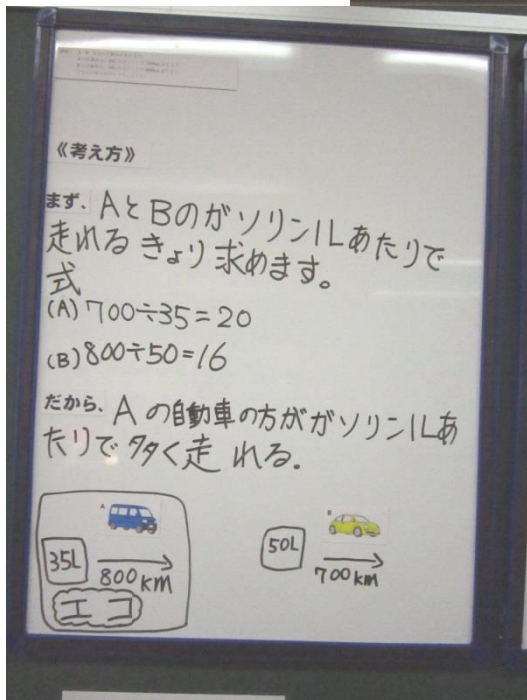 《考え方》
まず、AとBのガソリン1Lあたりで
走れるきょり求めます。
式
(A)700÷35=20
(B)800÷50=16
だから、Aの自動車の方がガソリン1Lあ
たりで多く走れる.
A
B
35L
800km
50L
700km
エコ